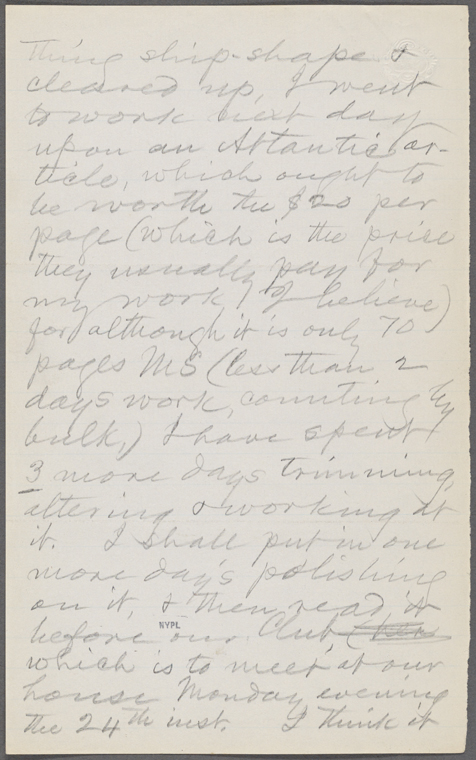 thing ship-shape &
cleared up, I went
to work next day
upon an Atlantic ar-
ticle, which ought to
be worth the $20 per
page (which is the price
they usually pay for
my work, I believe)
for although it is only 70
pages MS (less than 2
days work, counting by
bulk,) I have spent
3 more days trimming,
altering & working at
it. I shall put in one
more day's polishing
on it, & then read it
before our Club,
NYPL
which is to meet at our
house Monday evening
the 24th inst. I think it